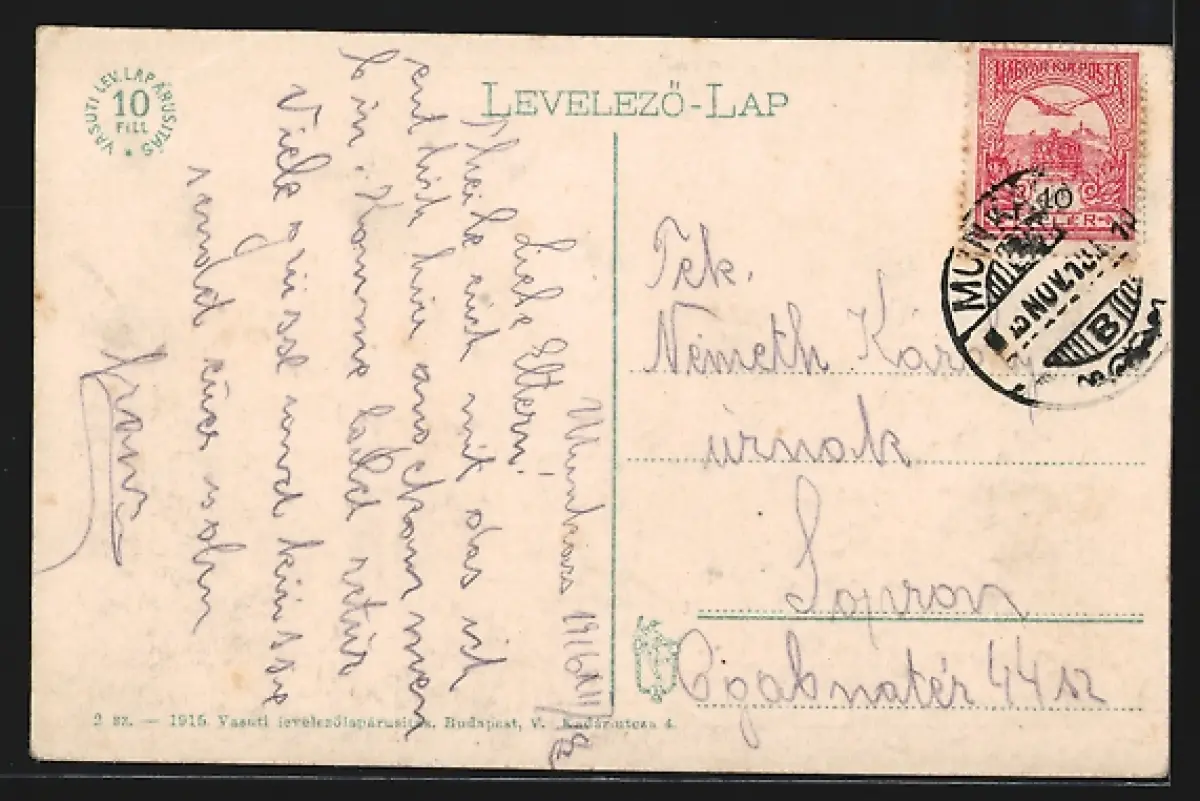 VASUTI LEV.LAPÁRUSITÁS
10
FILL
LEVELEZŐ-LAP
MAGYAR KIR. POSTA
10
FILLER
MUNKÁCS
NOV.
B
Munkács 1916
Liebe Eltern!
Theile euch mit das ich
gut hir angekommen
bin. Komme bald retur
Viele grüsse und küisse
send euer sohn
Franz
Tek.
Németh Károly
úrnak
Sopron
Ógabnatér 44 sz
2 sz. — 1915. Vasuti levelezőlapárusitás, Budapest, V. Kádár-utcza 4.